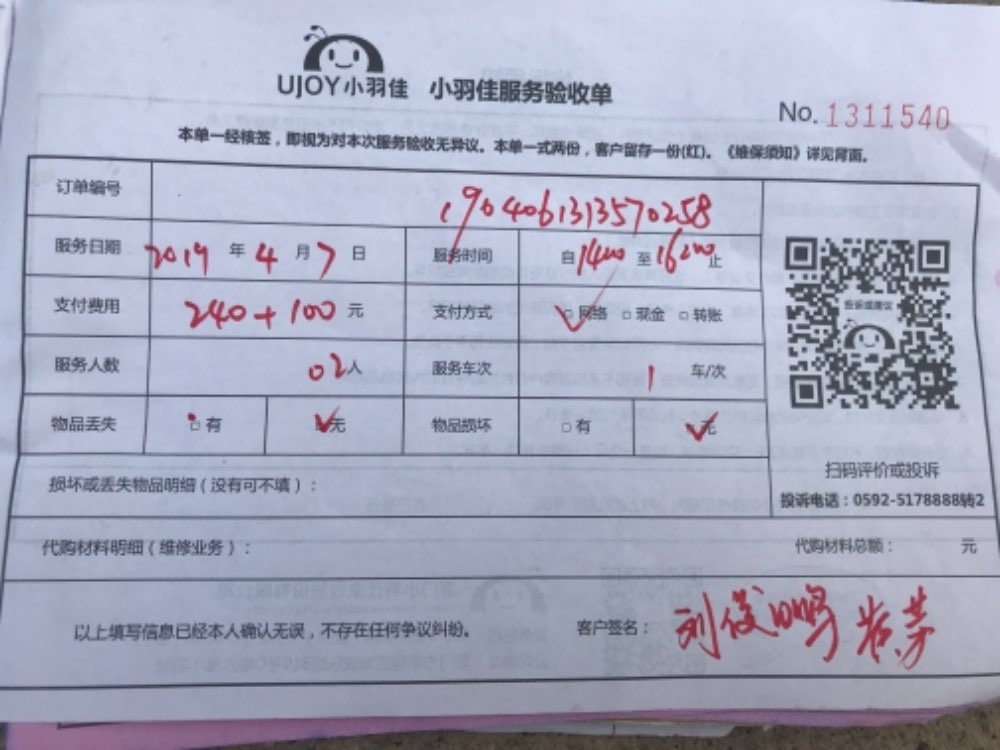 UJOY小羽佳 小羽佳服务验收单
No. 1311540
本单一经核签，即视为对本次服务验收无异议。本单一式两份，客户留存一份(红)。《维保须知》详见背面。
订单编号 1904061313570258
服务日期 2019 年 4 月 7 日 服务时间 自1400至1600止
支付费用 240+100 元 支付方式 □网络 □现金 □转账
服务人数 02人 服务车次 1 车/次
物品丢失 □有 □无 物品损坏 □有 □无
投诉或建议
扫码评价或投诉
投诉电话：0592-5178888转2
损坏或丢失物品明细（没有可不填）：
代购材料明细（维修业务）： 代购材料总额： 元
以上填写信息已经本人确认无误，不存在任何争议纠纷。 客户签名： 刘俊